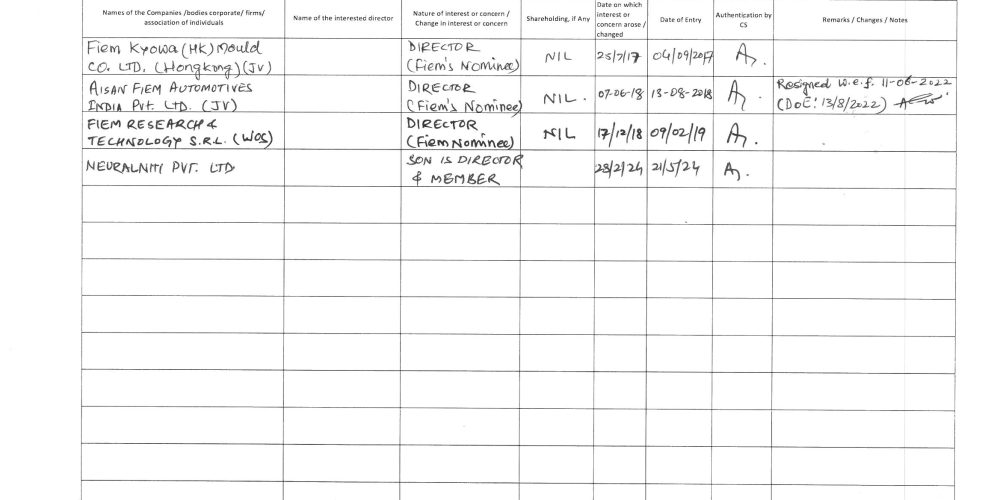 Names of the Companies /bodies corporate/ firms/ association of individuals | Name of the interested director | Nature of interest or concern / Change in interest or concern | Shareholding, if Any | Date on which interest or concern arose / changed | Date of Entry | Authentication by CS | Remarks / Changes / Notes
Fiem Kyowa (HK) Mould | DIRECTOR
CO. LTD. (Hongkong) (JV) | (Fiem's Nominee) | NIL | 25/7/17 | 04/09/2017
AISAN FIEM AUTOMOTIVES | DIRECTOR | Resigned w.e.f. 11-08-2022
INDIA Pvt. LTD. (JV) | (Fiem's Nominee) | NIL. | 07-06-18 | 13-08-2018 | (DOE: 13/8/2022)
FIEM RESEARCH & | DIRECTOR
TECHNOLOGY S.R.L. (WOS) | (Fiem Nominee) | NIL | 17/12/18 | 09/02/19
NEURALNITI PVT. LTD | SON IS DIRECTOR
& MEMBER | 28/2/24 | 21/5/24